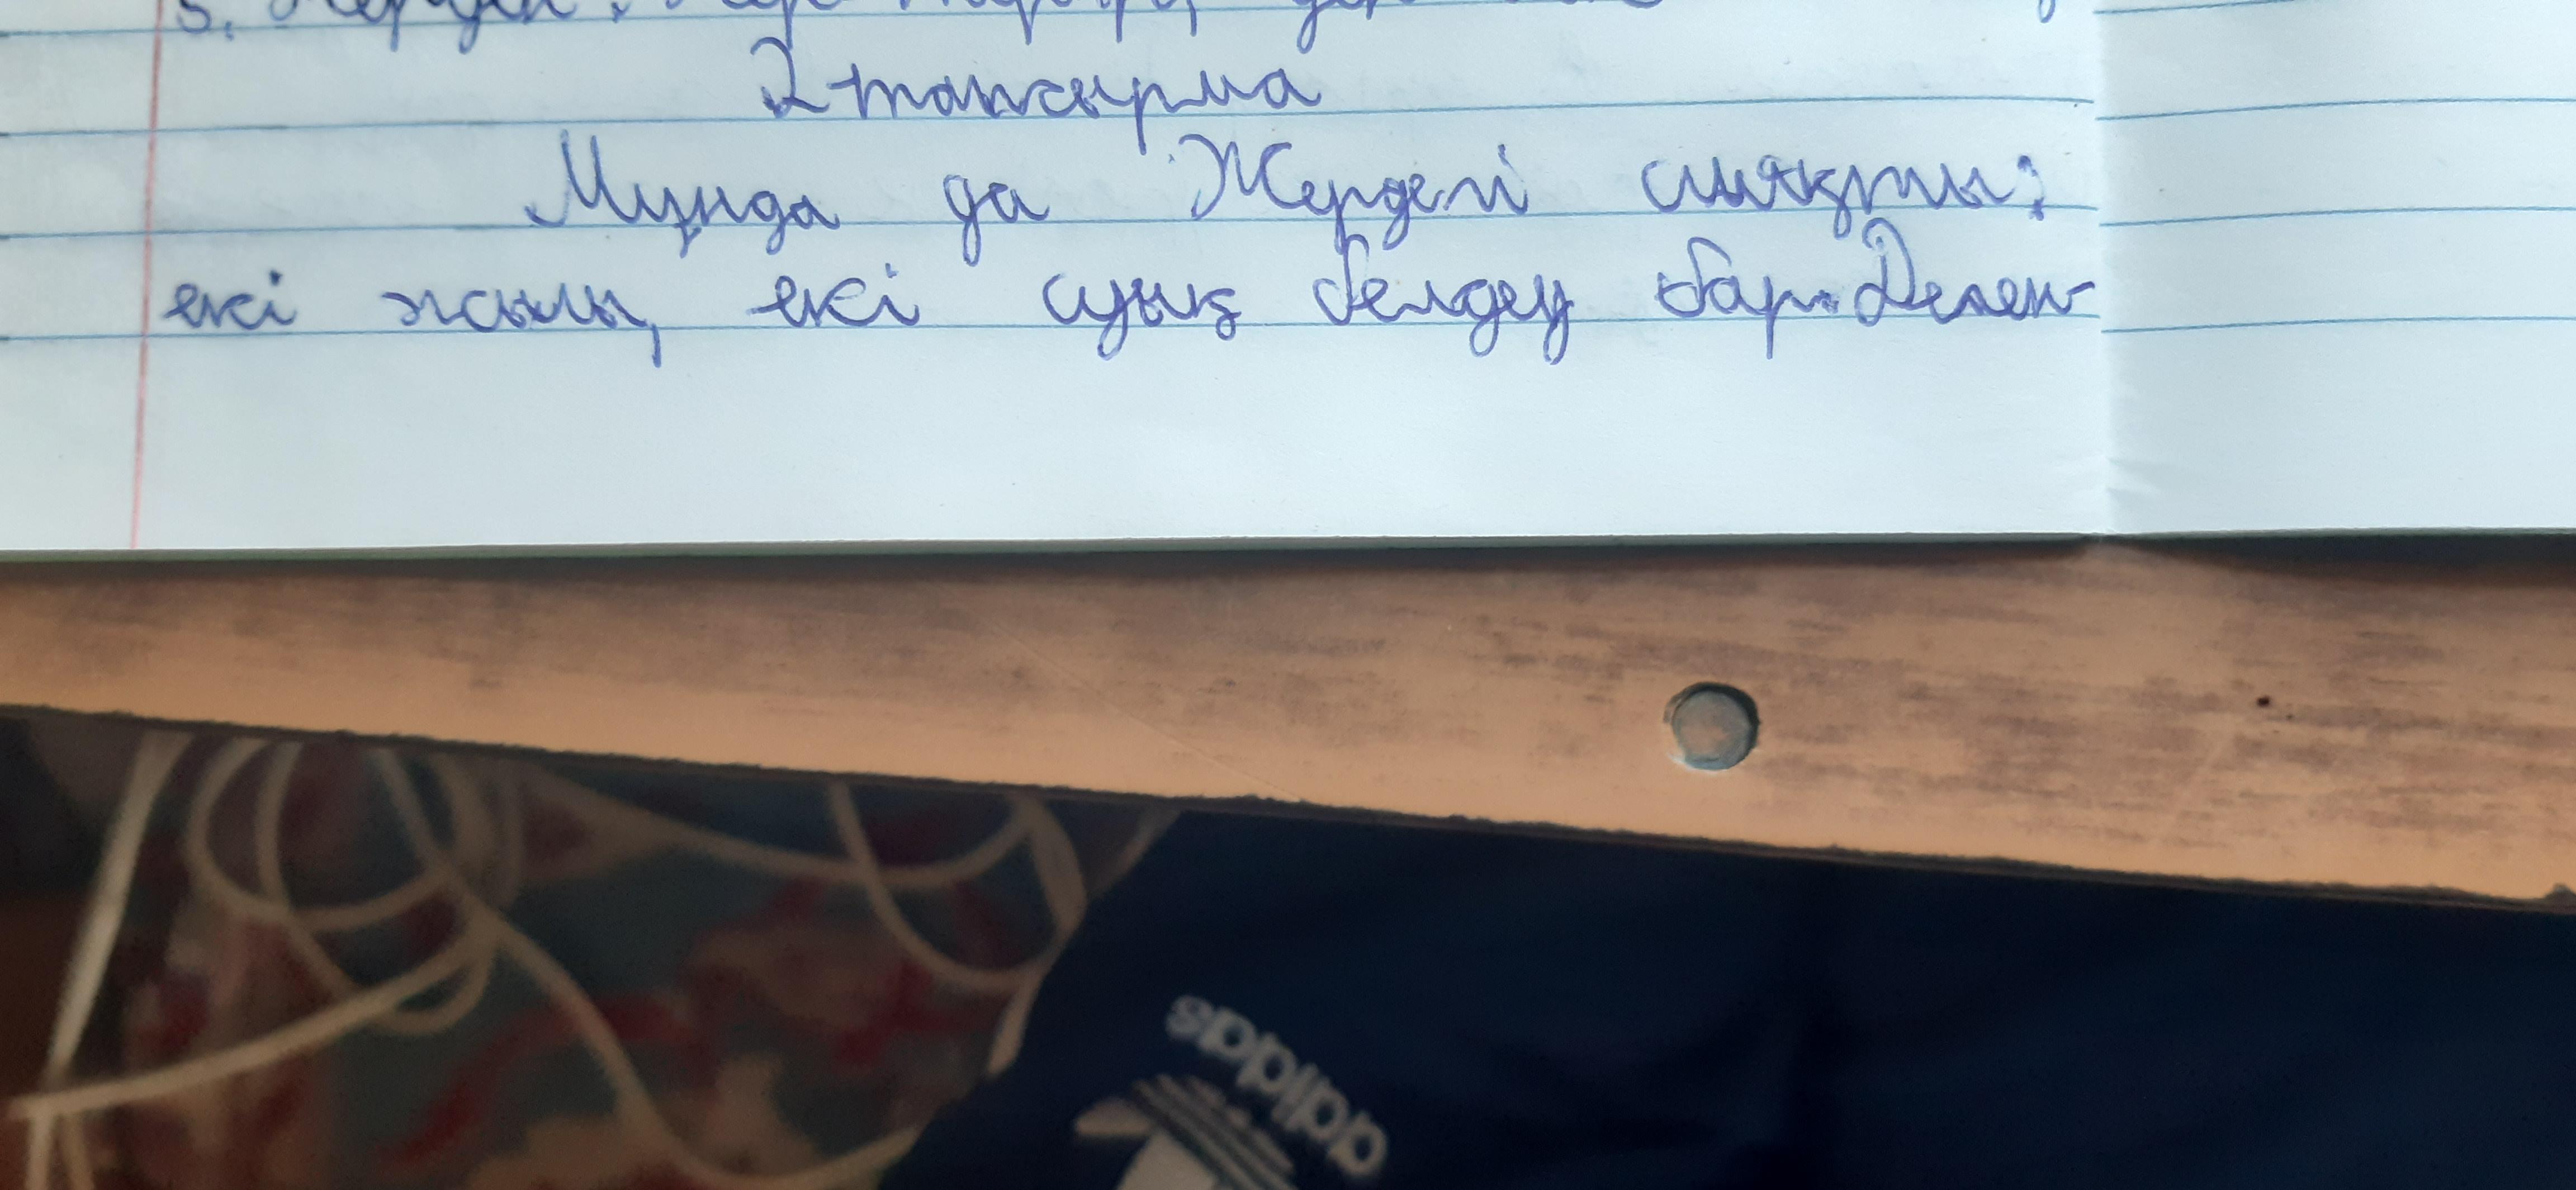 2 тапсырма
Мұнда да Жердегі сияқты;
екі жылы, екі суық белдеу бар. Демек
adidas